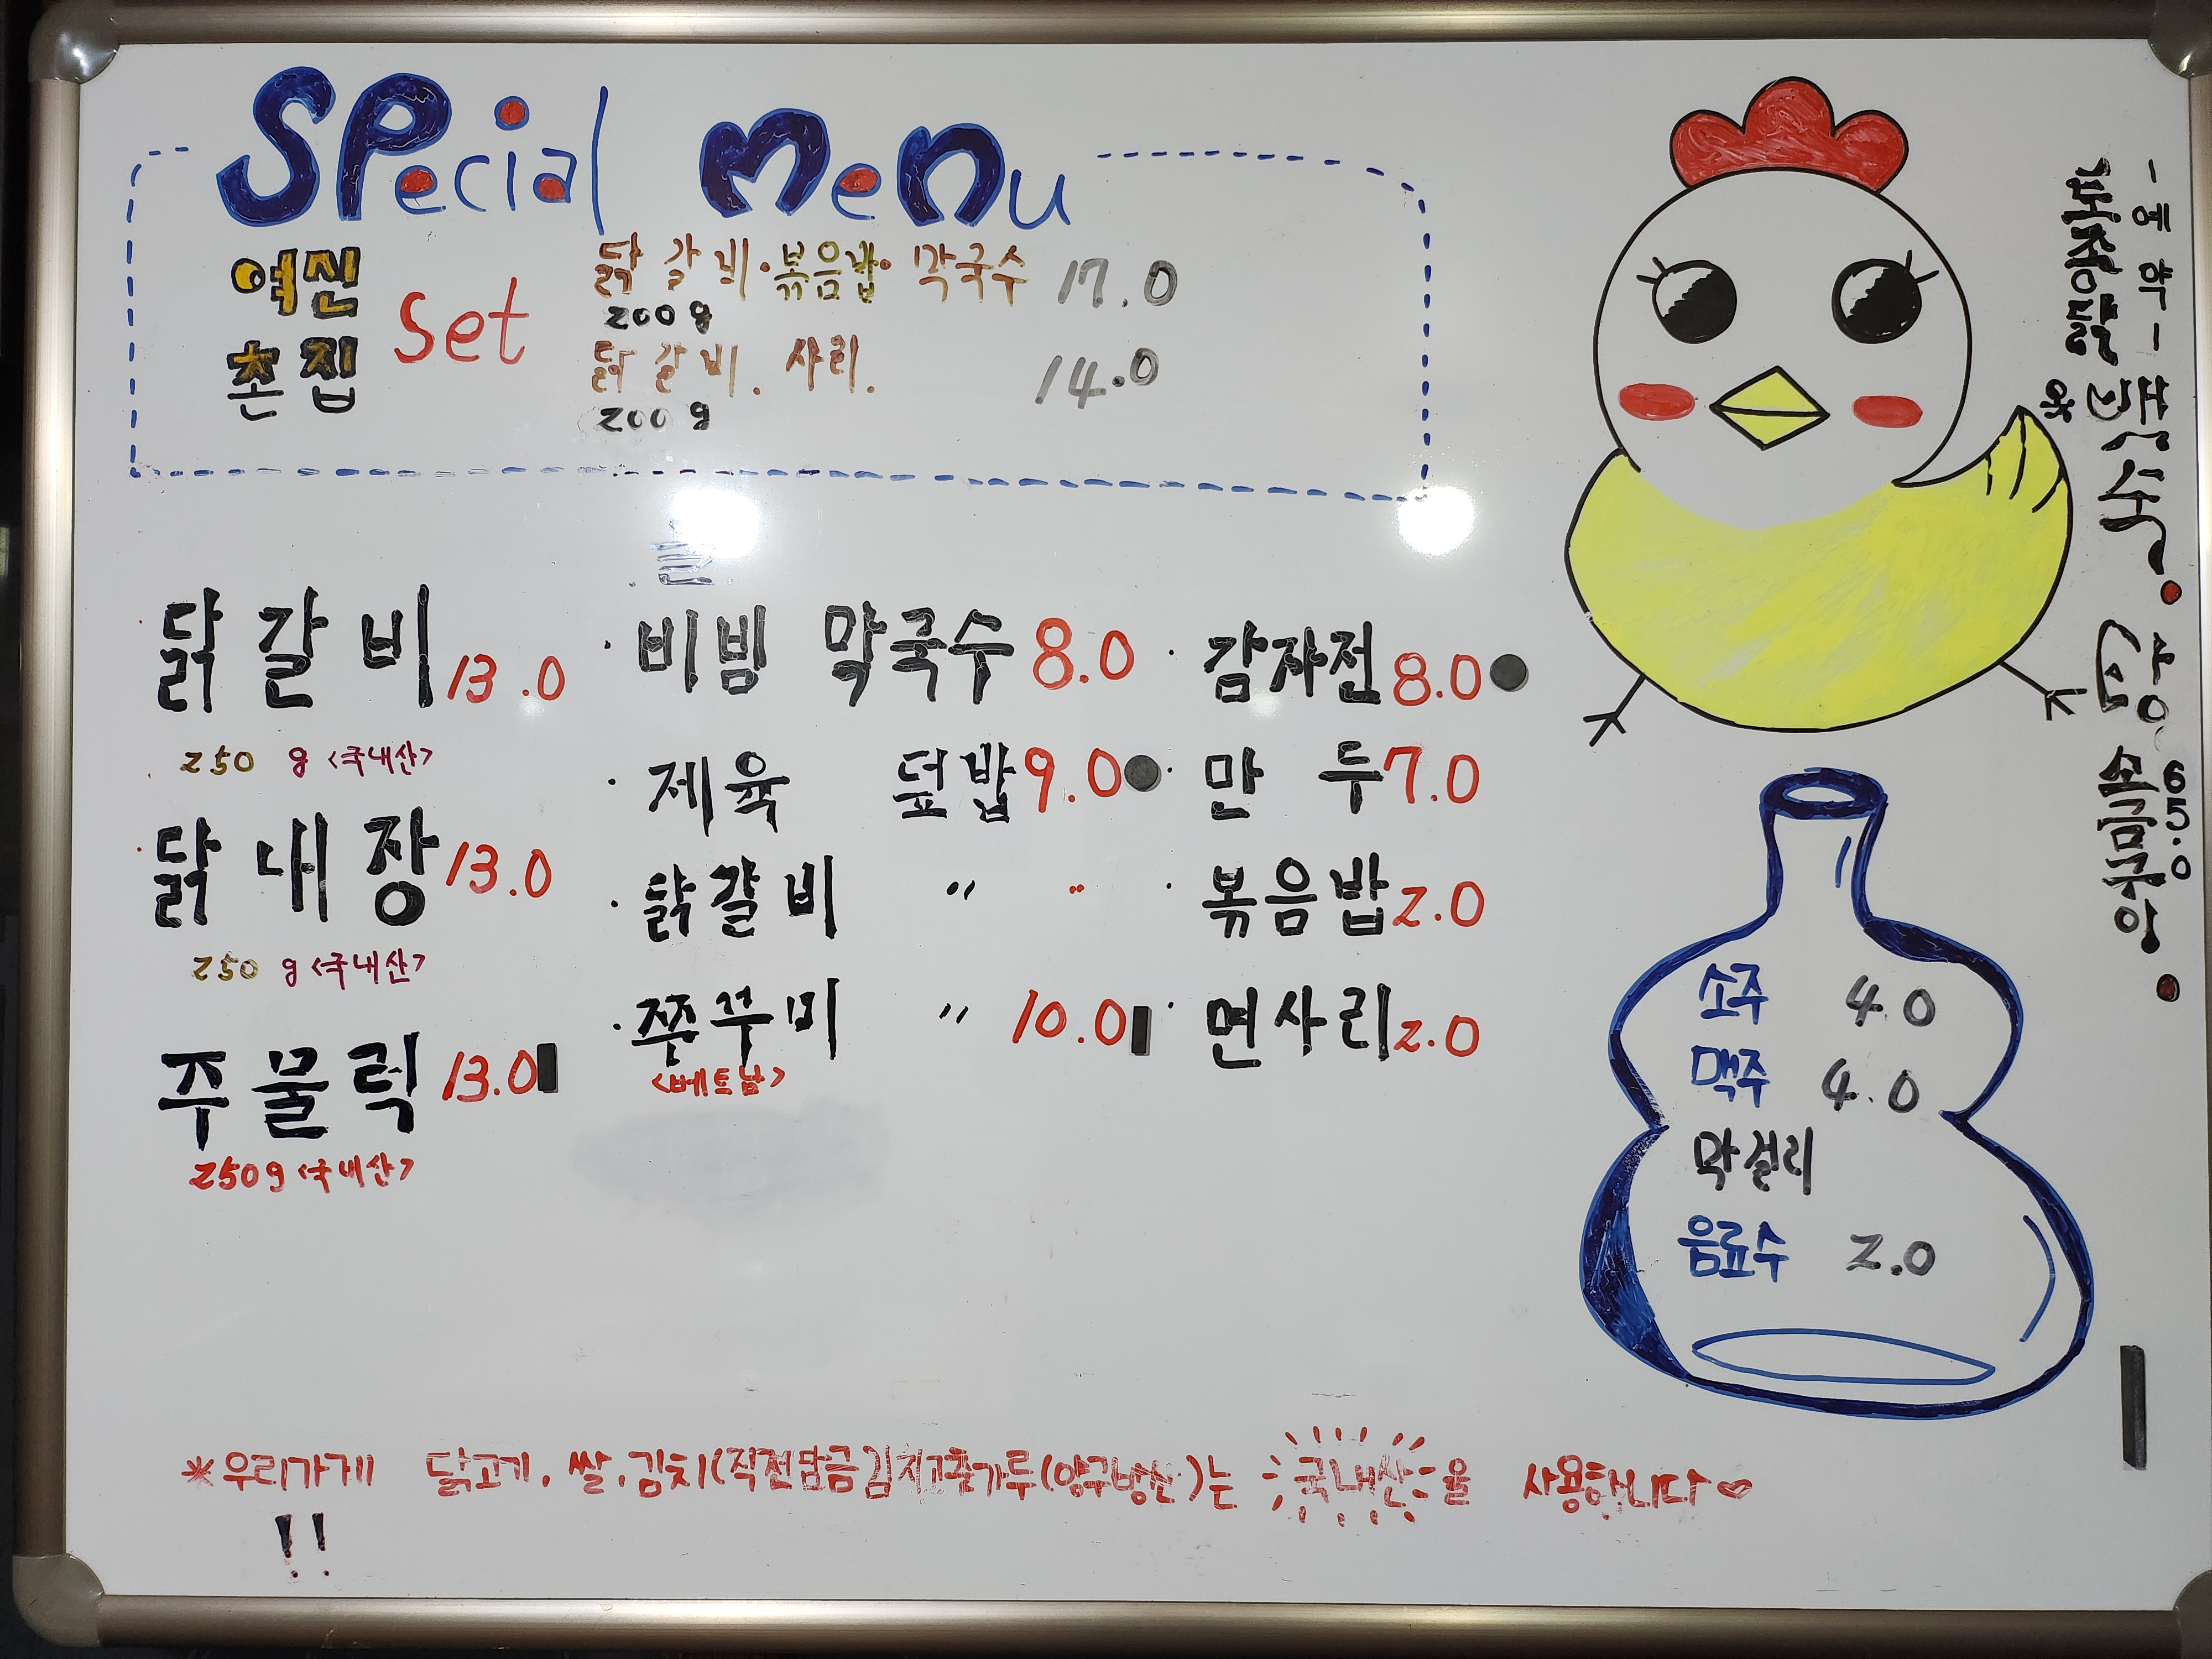 SPecial menu
여진
촌집
set
닭갈비·볶음밥·막국수 17.0
200g
닭갈비. 사리. 14.0
200g
닭갈비 13.0
250g <국내산>
닭내장 13.0
250g <국내산>
주물럭 13.0
250g <국내산>
· 비빔 막국수 8.0
· 제육 덮밥 9.0
· 닭갈비 〃 〃
· 쭈꾸미 〃 10.0
<베트남>
· 감자전 8.0
· 만두 7.0
· 볶음밥 2.0
· 면사리 2.0
소주 4.0
맥주 4.0
막걸리
음료수 2.0
65.0
*우리가게 닭고기. 쌀. 김치(직접담금김치고춧가루(양구방산)는 국내산을 사용합니다♡
!!